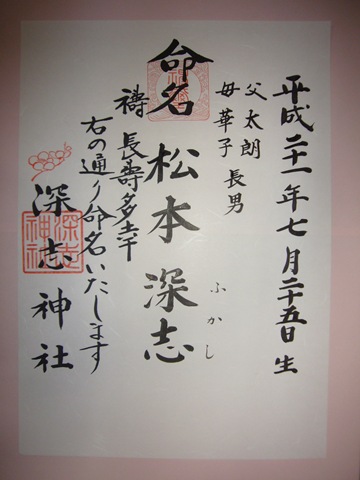 平成二十一年七月二十五日生
父 太朗
母 華子 長男
命名 松本深志
ふかし
祷 長寿多幸
右の通り命名いたします
深志神社
深志神社